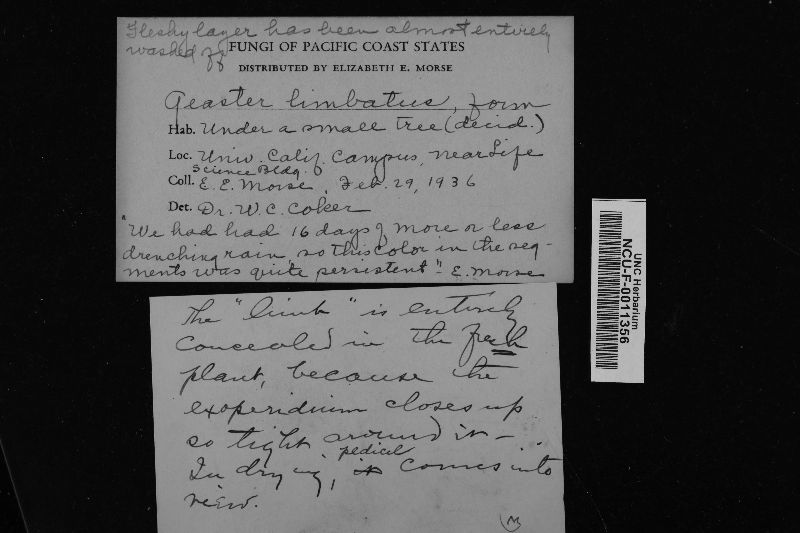 Fleshy layer has been almost entirely
washed off
FUNGI OF PACIFIC COAST STATES
DISTRIBUTED BY ELIZABETH E. MORSE
Geaster limbatus, form
Hab. Under a small tree (decid.)
Loc. Univ. Calif. Campus, near Life
Science Bldg.
Coll. E. E. Morse, Feb. 29, 1936
Det. Dr. W. C. Coker
"We had had 16 days of more or less
drenching rain, so this color in the seg-
ments was quite persistent" - E. Morse
UNC Herbarium
NCU-F-0011356
The "limb" is entirely
concealed in the fresh
plant, because the
exoperidium closes up
so tight around it -
In drying, it pedicel comes into
view.
M